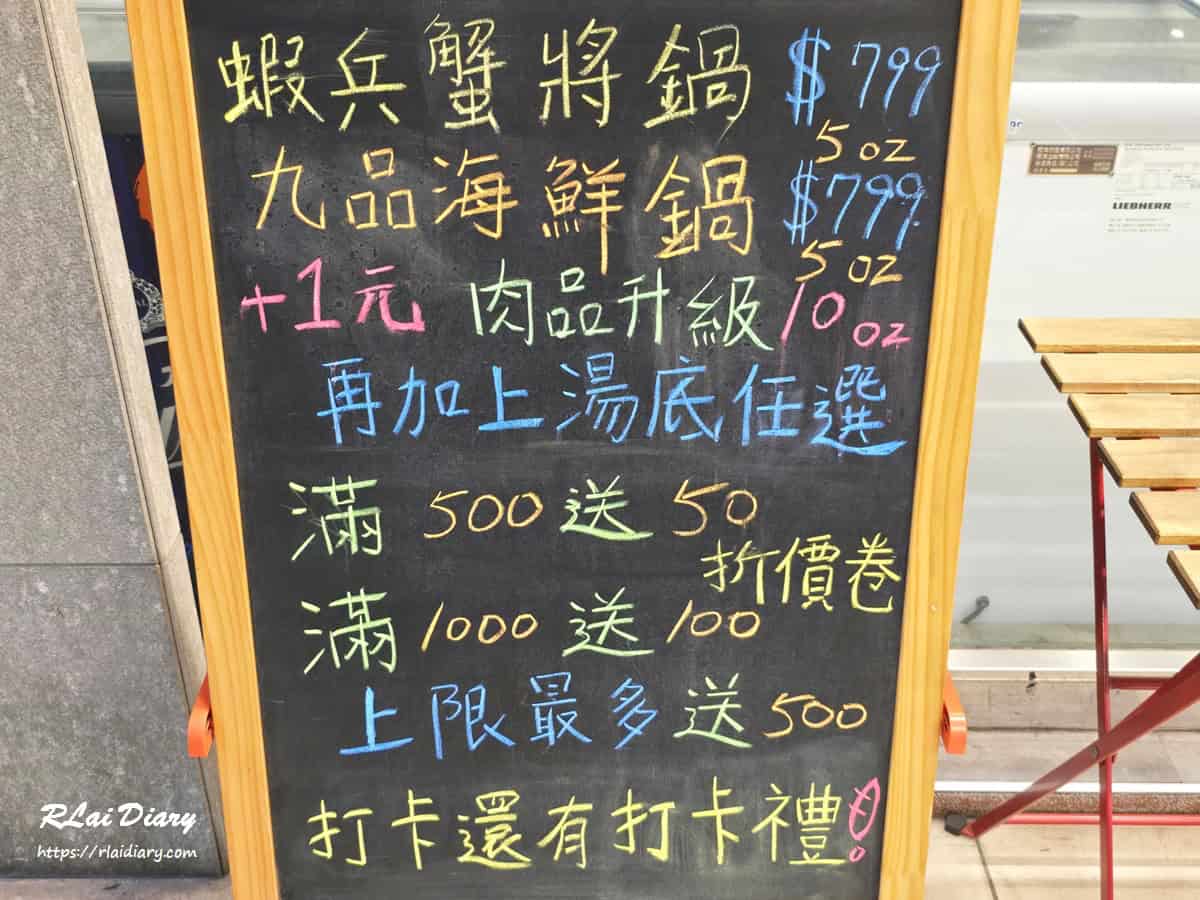 蝦兵蟹將鍋 $799
5 oz
九品海鮮鍋 $799
5 oz
+1元 肉品升級 10 oz
再加上湯底任選
滿 500 送 50
折價卷
滿 1000 送 100
上限最多送 500
打卡還有打卡禮!
LIEBHERR
RLai Diary
https://rlaidiary.com